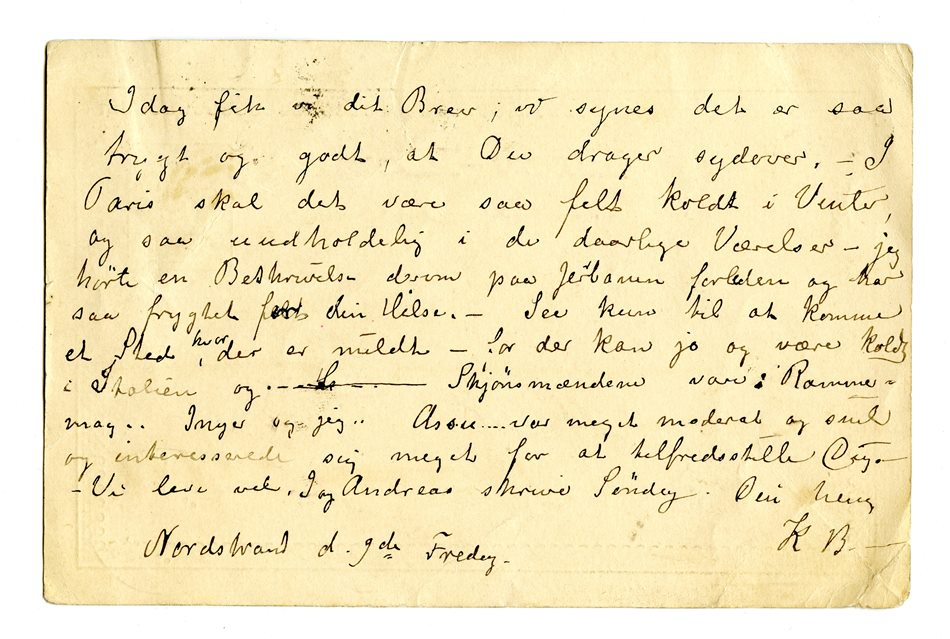 Idag fik vi dit Brev; vi synes det er saa
trygt og godt, at Du drager sydover. – I
Paris skal det være saa fælt koldt i Vinter,
og saa uudholdelig i de daarlige Værelser – jeg
hørte en Beskrivelse derom paa Jerbanen forleden og har
saa frygtet for din Helse. – See kun til at komme
et Sted hvor, der er mildt – for der kan jo og være koldt
i Italien og. – Skjønsmændene var:
mag.. Inger og jeg.. var meget moderat og snil
og interesserede sig meget for at tilfredsstille
– Vi leve vel. Jeg Andreas skrive Søndag. Din heng
Nordstrand d. 9de Fredag. K B. –